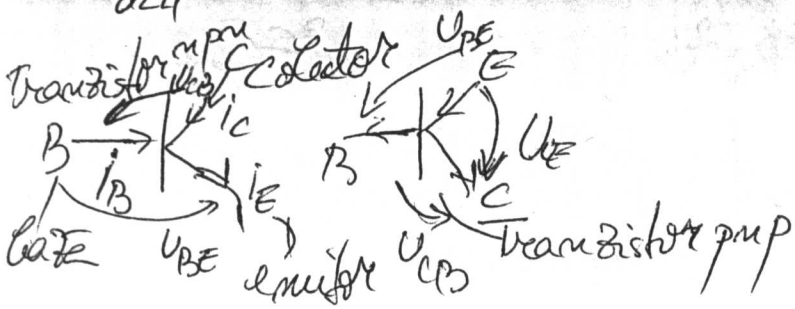 Tranzistor npn
C Colector
UCB
iC
B
iB
iE
UBE
baza
emitor
UBE
E
B
UCE
C
UCB
Tranzistor pnp